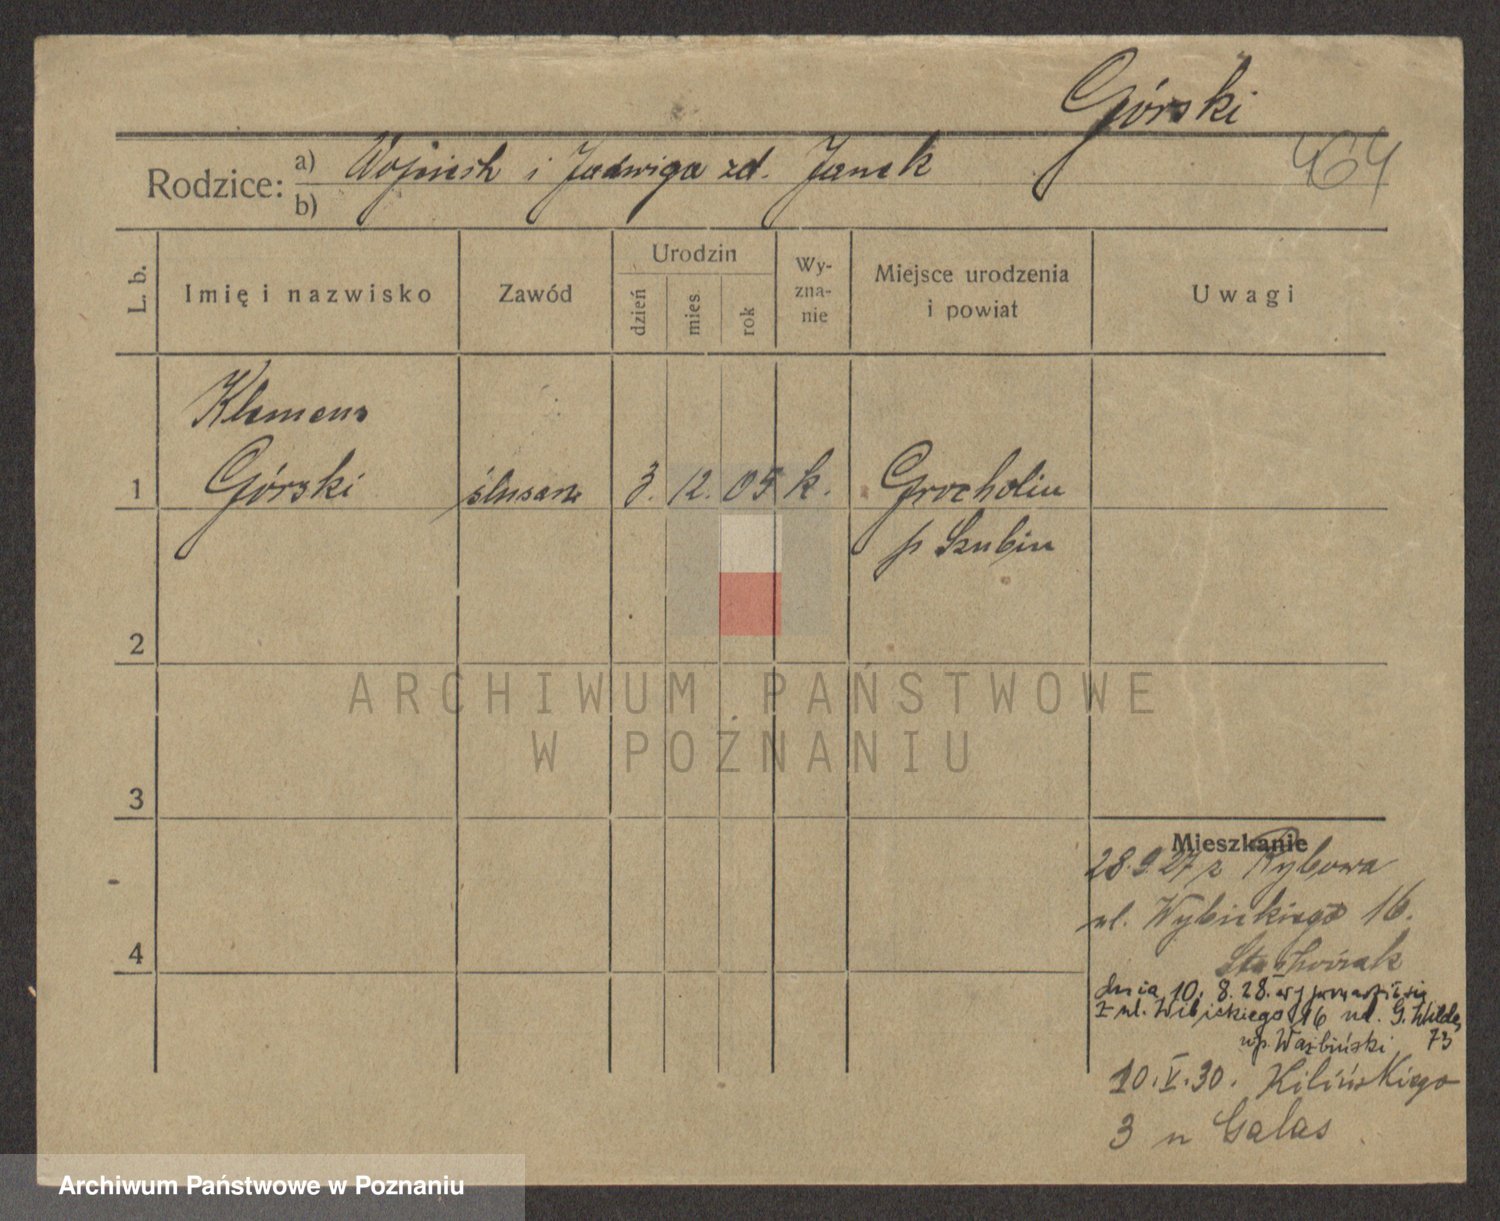 Górski
464
Rodzice: a) Wojciech i Jadwiga zd. Janek
b)
L. b.
Imię i nazwisko
Zawód
Urodzin
dzień
mies
rok
Wy-
zna-
nie
Miejsce urodzenia
i powiat
Uwagi
Klemens
1 Górski ślusarz 3. 12. 05 k. Grocholin
p Szubin
2
ARCHIWUM PAŃSTWOWE
W POZNANIU
3
Mieszkanie
28.9 27 z Rybowa
ul. Wybickiego 16.
4
dnia 10. 8. 28. wyprowadził się
z ul. Wibickiego 16 ul. G. Wilda
73
10.V.30. Kilińskiego
3 u Galas
Archiwum Państwowe w Poznaniu